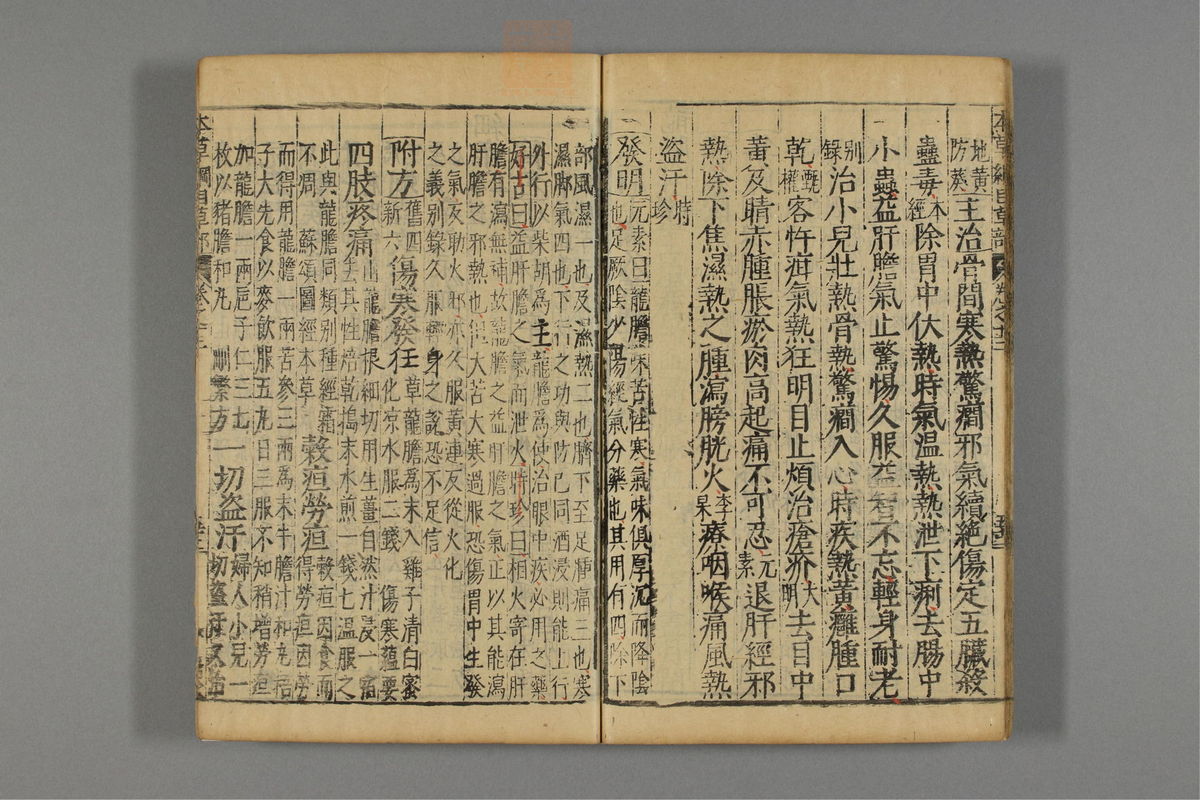 地黃
防葵主治骨間寒熱驚癇邪氣續絶傷定五臟殺
蠱毒本經除胃中伏熱時氣温熱熱泄下痢去腸中
小蟲益肝膽氣止驚惕久服益智不忘輕身耐老
别録治小兒壯熱骨熱驚癇入心時疾熱黃癰腫口
乾甄權客忤疳氣熱狂明目止煩治瘡疥大明去目中
黃及睛赤腫脹瘀肉高起痛不可忍元素退肝經邪
熱除下焦濕熱之腫瀉膀胱火李杲療咽喉痛風熱
盗汗時珍
發明元素曰龍膽味苦性寒氣味俱厚沉而降陰
也足厥陰少陽經氣分藥也其用有四除下
部風濕一也及濕熱二也臍下至足腫痛三也寒
濕脚氣四也下行之功與防己同酒浸則能上行
外行以柴胡爲主龍膽爲使治眼中疾必用之藥
好古曰益肝膽之氣而泄火時珍曰相火寄在肝
膽有瀉無補故龍膽之益肝膽之氣正以其能瀉
肝膽之邪熱也但大苦大寒過服恐傷胃中生發
之氣反助火邪亦久服黃連反從火化
之義别錄久服輕身之説恐不足信
附方舊四新六傷寒發狂草龍膽爲末入雞子清白蜜
化凉水服二錢 傷寒蘊要
四肢疼痛山龍膽根細切用生薑自然汁浸一宿
去其性焙乾搗末水煎一錢七温服之
此與龍膽同類别種經霜
不凋 蘇頌圖經本草 穀疸勞疸穀疸因食而
得勞疸因勞
而得用龍膽一兩苦參三兩爲末牛膽汁和丸梧
子大先食以麥飲服五丸日三服不知稍增勞疸
加龍膽一兩巵子仁三七
枚以猪膽和丸 删繁方 一切盗汗婦人小兒一
切盗汗又治